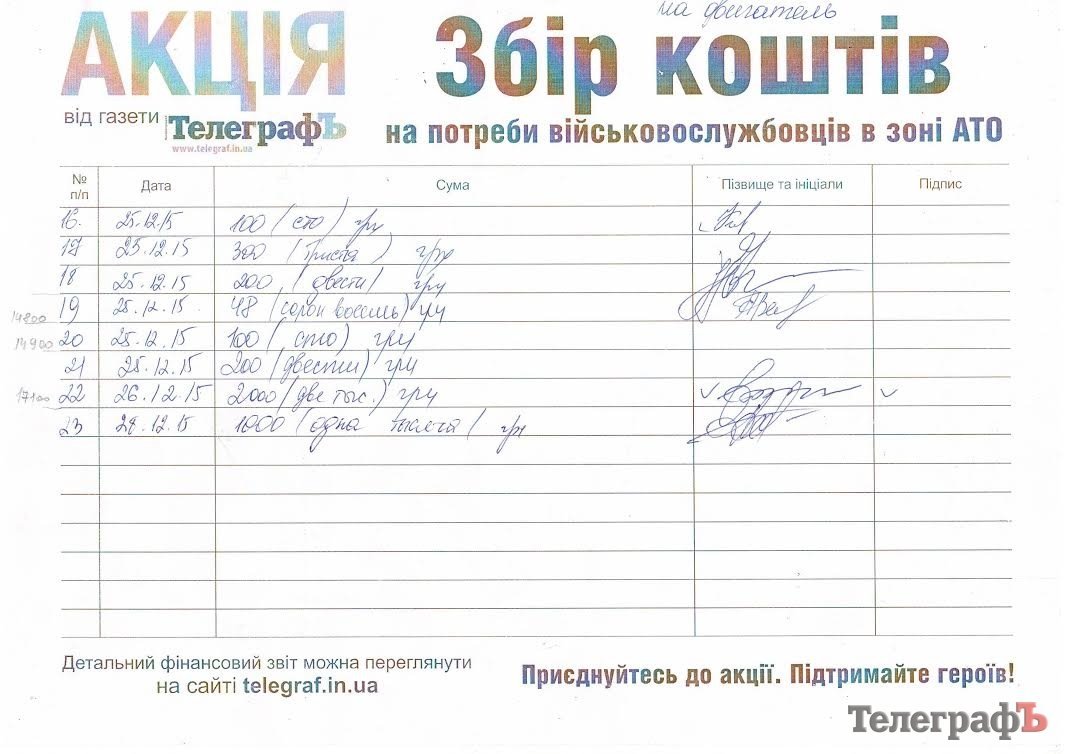 на двигатель
АКЦІЯ
Збір коштів
від газети ТелеграфЪ
www.telegraf.in.ua
на потреби військовослужбовців в зоні АТО
№ п/п Дата Сума Пізвище та ініціали Підпис
16. 25.12.15 100 (сто) грн
17 25.12.15 300 (триста) грн
18 25.12.15 200 (двести) грн
14800 19 25.12.15. 48 (сорок восемь) грн
14900 20 25.12.15 100 (сто) грн
21 25.12.15 200 (двести) грн
17100 22 26.12.15 2000 (две тыс.) грн
23 28.12.15 1000 (одна тысяча) грн
Детальний фінансовий звіт можна переглянути
на сайті telegraf.in.ua
Приєднуйтесь до акції. Підтримайте героїв!
ТелеграфЪ